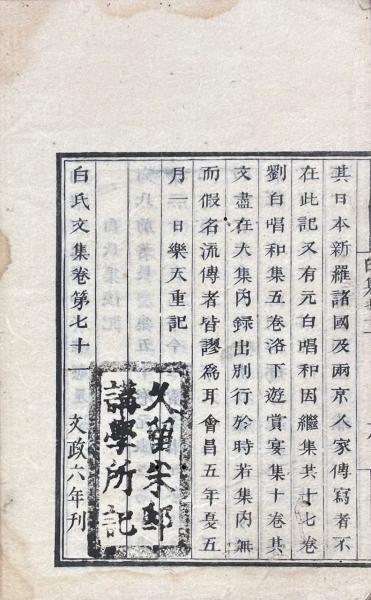 其日本新羅諸國及兩京人家傳寫者不
在此記又有元白唱和因繼集共十七卷
劉白唱和集五卷洛下遊賞宴集十卷其
文盡在大集內録出別行於時若集內無
而假名流傳者皆謬為耳會昌五年夏五
月一日樂天重記
白氏文集卷第七十
文政六年刊
久留米邸
講學所記